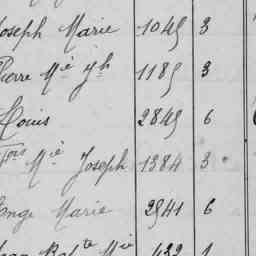 Joseph Marie 1045 3
Pierre Mie Jh 1185 3
Louis 2845 6
Fois Mie Joseph 1384 3
Ange Marie 2941 6
Jean Bapte Mie 432 1